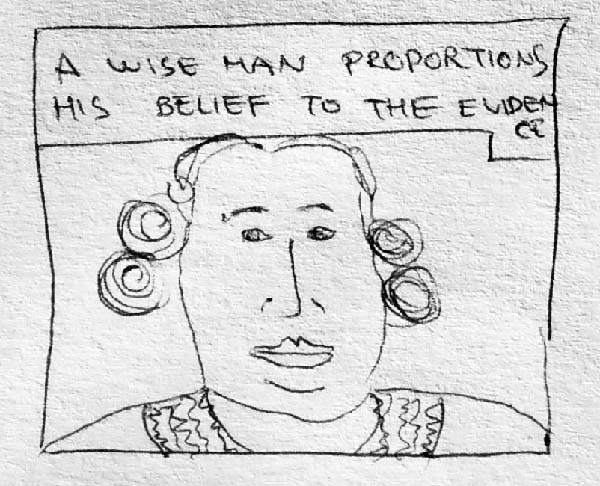 A WISE MAN PROPORTIONS
HIS BELIEF TO THE EVIDEN
CE